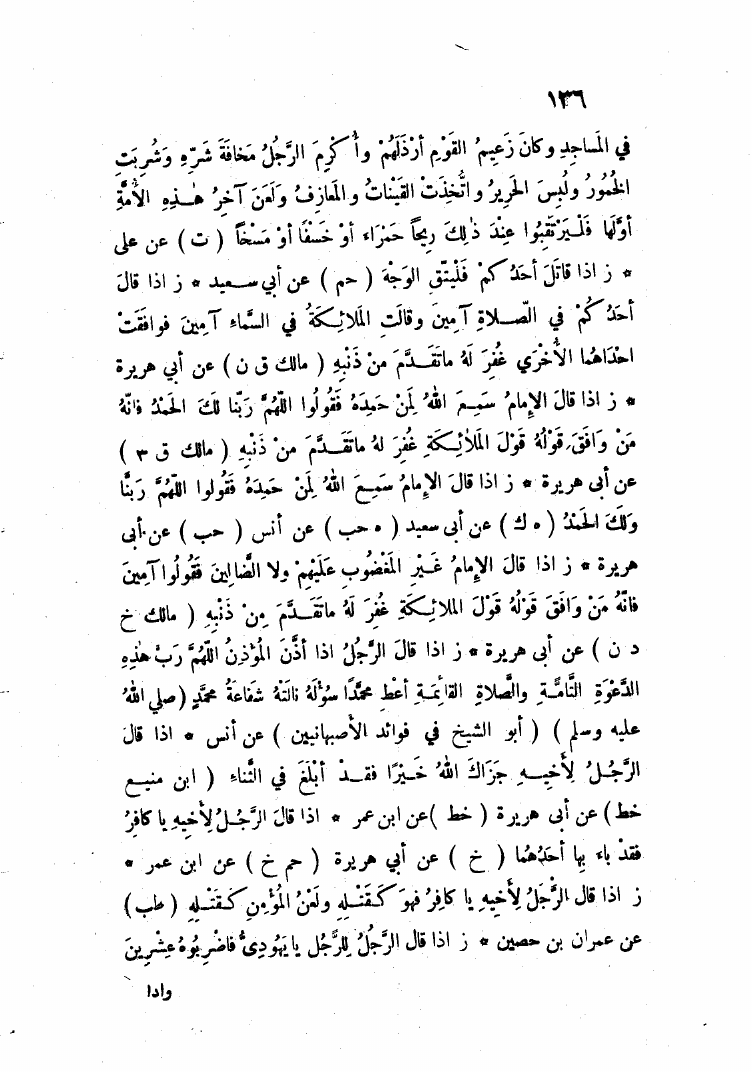 ١٣٦
في المَساجِدِ وكانَ زَعيمُ القَوْمِ أرْذَلَهُمْ وأُكْرِمَ الرَّجُلُ مَخافَةَ شَرِّهِ وَشُرِبَتِ
الخُمُورُ ولُبِسَ الحَرِيرُ واتُّخِذَتْ القَيْناتُ والمَعازِفُ ولَعَنَ آخِرُ هٰذِهِ الأُمَّةِ
أوَّلَها فَلْيَرْتَقِبُوا عِنْدَ ذٰلِكَ رِيحاً حَمْرَاء أوْ خَسْفًا أوْ مَسْخاً ( ت ) عن على
* ز اذا قاتَلَ أحَدُكمْ فَلْيَتَّقِ الوَجْهَ ( حم ) عن أبي سعيد * ز اذا قالَ
أحَدُكُمْ في الصَّلاةِ آمِينَ وقالَتِ المَلائِكَةُ في السَّماءِ آمِينَ فوافَقَتْ
احْدَاهُما الأُخْرَي غُفِرَ لَهُ ماتَقَدَّمَ مَنْ ذَنْبِهِ ( مالك ق ن ) عن أبي هريرة
* ز اذا قالَ الإِمامُ سَمِعَ اللهُ لِمَنْ حَمِدَهُ فَقُولُوا اللّهُمَّ رَبّنا لكَ الحَمْدُ فانّهُ
مَنْ وَافَقَ قَوْلُهُ قَوْلَ المَلائِكَةِ غُفِرَ لهُ ماتَقَدَّمَ منْ ذَنْبِهِ ( مالك ق ٣ )
عن أبى هريرة * ز اذا قالَ الإمامُ سَمِعَ اللهُ لِمَنْ حَمِدَهُ فَقُولوا اللّهُمَّ رَبَّنا
ولَكَ الحَمْدُ ( ه ك ) عن أبى سعيد ( ه حب ) عن أنس ( حب ) عن أبى
هريرة * ز اذا قالَ الإِمامُ غَيْرِ المَغْضُوبِ عَلَيْهِمْ ولا الضَّالِينَ فَقُولُوا آمِينَ
فانَّهُ مَنْ وَافَقَ قَوْلُهُ قَوْلَ الملائِكَةِ غُفِرَ لهُ ماتَقَدَّمَ مِنْ ذَنْبِهِ ( مالك خ
د ن ) عن أبى هريرة * ز اذا قالَ الرَّجُلُ اذا أذَّنَ المُؤَذِنُ اللّهُمَّ رَبَّ هٰذِهِ
الدَّعْوَةِ التَّامَّةِ والصَّلاةِ القائِمَةِ أعْطِ محمَّدًا سُؤْلَهُ نالَتْهُ شَفاعَةُ محمَّدٍ (صلي اللهُ
عليه وسلم ) ( أبو الشيخ في فوائد الأصبهانيين ) عن أنس * اذا قالَ
الرَّجُلُ لِأَخِيهِ جَزَاكَ اللهُ خَيْرًا فقدْ أبْلَغَ في الثَّناءِ ( ابن منيع
خط) عن أبى هريرة ( خط )عن ابن عمر * اذا قالَ الرَّجُلُ لِأخِيهِ يا كافِرُ
فقدْ باء بِها أحَدُهُما ( خ ) عن أبي هريرة ( حم خ ) عن ابن عمر *
ز اذا قال الرَّجُلُ لِأَخِيهِ يا كافِرُ فهوَ كَقَتْلِهِ ولَعْنُ المُؤْمِنِ كَقَتْلِهِ ( طب )
عن عمران بن حصين * ز اذا قال الرَّجُلُ لِلرَّجُلِ يا يَهُودِىُّ فاضْرِبُوهُ عِشْرِينَ
واذا